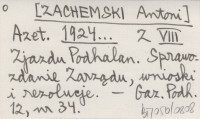 [ZACHEMSKI Antoni]
Azet. 1924... Z VIII
Zjazdu Podhalan. Sprawo-
zdanie Zarządu, wnioski
i rezolucje. — Gaz. Podh.
12, nr 34.